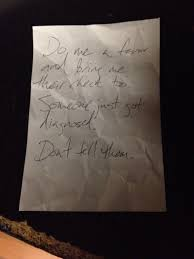 Do me a favor
and bring me
their check too
Someone just got
diagnosed!
Don't tell them.